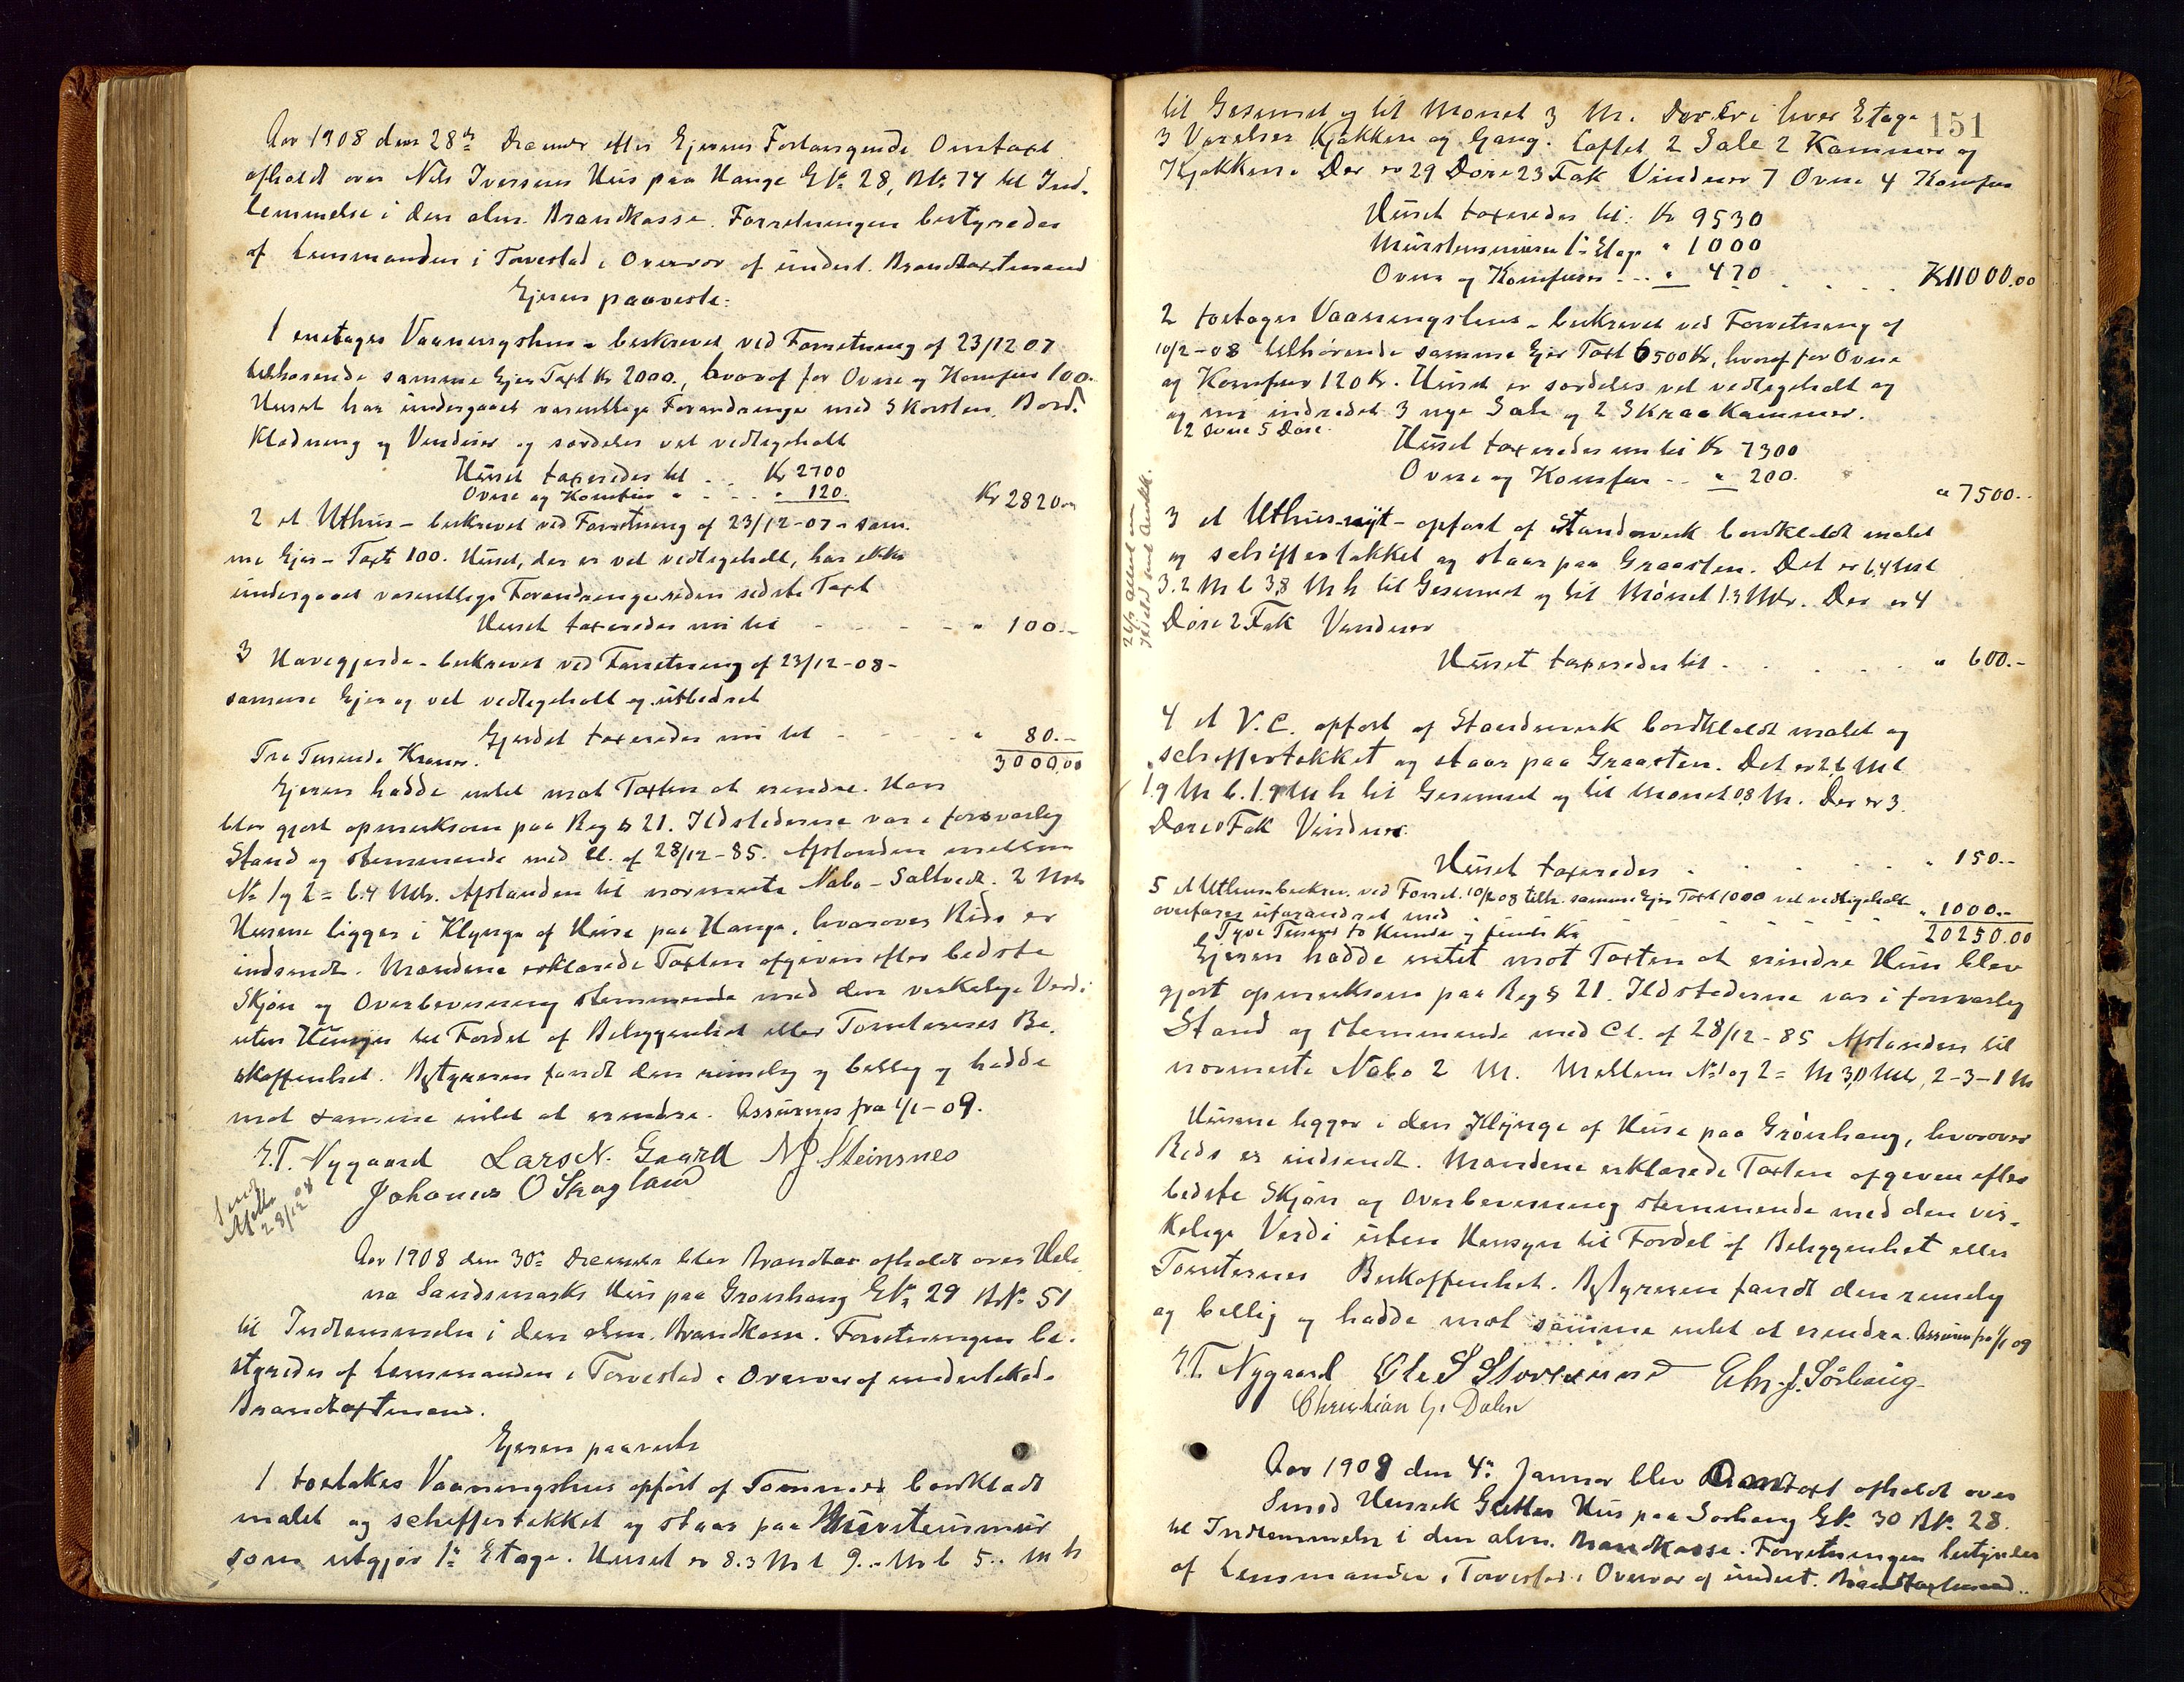 Aar 1908 den 28de December efter Ejerens Forlangende Omtaxt
afholdt over Nils Iversens Hus paa Hauge GNr. 28, BNr. 74 til Ind-
lemmelse i den alm. Brandkasse. Forretningen bestyredes
af Lensmanden i Torvestad i Overvær af undert. Brandtaxtmænd
Ejeren paaviste:
1 enetages Vaaningshus – beskrevet ved Forretning af 23/12 07
tilhørende samme Ejer Taxt Kr 2000., hvoraf for Ovne og Komfur 100.
Huset har undergaaet væsentlige Forandringer med Skorsten, Bord-
klædning og Vinduer og særdeles vel vedligeholdt
Huset taxeredes til . . Kr 2700
Ovne og Komfur " . . . " 120. Kr 2820.00
2 et Uthus – beskrevet ved Forretning af 23/12-07 – sam-
me Ejer – Taxt 100. Huset, der er vel vedligeholdt, har ikke
undergaaet væsentlige Forandringer siden sidste Taxt
Huset taxeredes nu til - - - - " 100.-
3 Havegjerde – beskrevet ved Forretning af 23/12-08 –
samme Ejer og vel vedligeholdt og utbedret
Gjerdet taxeredes nu til - - - " 80.-
Tre Tusende Kroner. 3000.00
Ejeren hadde intet mot Taxten at erindre. Han
blev gjort opmerksom paa Reg § 21. Ildstederne var i forsvarlig
Stand og stemmende med Cl. af 28/12-85. Afstanden mellem
No 1 og 2 = 6.4 Mtr. Afstanden til nærmeste Nabo – Saltvedt. 2 Mtr
Husene ligger i Klynge af Huse paa Hauge, hvorover Rids er
indsendt. Mændene erklærede Taxten afgiven efter bedste
Skjøn og Overbevisning stemmende med den verkelige Verdi
uten Hensyn til Fordel af Beliggenhet eller Tomternes Be-
skaffenhet. Bestyreren fandt den rimelig og billig og hadde
mot samme intet at erindre. Assureres fra 1/1-09.
E.T. Nygaard Lars N. Gaard NJ Steinsnes
Johannes O Skogland
28/12 08
Aar 1908 den 30te December blev Brandtax afholdt over Hele-
na Sandsmarks Hus paa Grønhaug GNr 29 BNr. 51
til Indlemmelse i den alm. Brandkasse. Forretningen be-
styredes af Lensmanden i Torvestad i Overvær af undertekede
Brandtaxtmænd.
Ejeren paaviste
1 toetakes Vaaningshus opført af Tømmer bordklædt
malet og schiffertækket og staar paa Murstensmur
som utgjør 1te Etage. Huset er 8.3 M l 9.. M b 5.. M h
151
til Gesemset og til Mønet 3 M. Der er i hver Etage
3 Værelser Kjøkken og Gang. Loftet 2 Sale 2 Kammer og
Kjøkken. Der er 29 Døre 23 Fak Vinduer 7 Ovne 4 Komfur
Huset taxeredes til: Kr 9530
Murstensmuren 1te Etage " 1000
Ovne og Komfurer . - - " 470 . . . . K 11000.00
2 toetages Vaaningshus – beskrevet ved Forretning af
10/2-08 tilhørende samme Ejer Taxt 6500 Kr, hvoraf for Ovne
og Komfur 120 Kr. Huset er særdeles vel vedligeholdt og
og nu indredet 3 nye Sale og 2 Skraakammer.
12 Ovne 5 Døre.
Huset taxeredes nu til Kr 7300
Ovne og Komfur - - " 200. " 7500.-
3 et Uthus – nyt – opført af Standerverk bordklædt malet
og schiffertækket og staar paa Graasten. Det er 6.4 M l
3.2 M b 3.8 M h til Gesemset og til Mønet 1.3 Mtr. Der er 4
Døre 2 Fak Vinduer
Huset taxeredes til - . . . . " 600.-
4 et V.C. opført af Standerverk bordklædt malet og
schiffertækket og staar paa Graasten. Det er 2.6 M l
1.9 M b. 1.9 M h til Gesemset og til Mønet 0.8 M. Der er 3
Døre 0 Fak Vinduer.
Huset taxeredes . . . . . " 150.-
5 et Uthus beskrev. ved Forret. 10/2 08 tilh. samme Ejer Taxt 1000 vel vedligeholdt
overføres uforandret med " 1000.-
Tyve Tusend to Hundre og femti Kr 20250.00
Ejeren hadde intet mot Taxten at erindre Hun blev
gjort opmerksom paa Reg § 21. Ildstederne var i forsvarlig
Stand og stemmende med Cl. af 28/12-85 Afstanden til
nærmeste Nabo 2 M. Mellem No 1 og 2 = M 3,0 Mtr, 2-3-1 M
Husene ligger i den Klynge af Huse paa Grønhaug, hvorover
Rids er indsendt. Mændene erklærede Taxten afgiven efter
bedste Skjøn og Overbevisning stemmende med den vir-
kelige Verdi uten Hensyn til Fordel af Beliggenhet eller
Tomternes Beskaffenhet. Bestyreren fandt den rimelig
og billig og hadde mot samme intet at erindra. Assureres fra 1/1 09
E.T. Nygaard Ole S Storesund Chr. J. Sörhaug
Christian G. Dalen
Aar 1909 den 4de Januar blev Brandtaxt afholdt over
Smed Henrik Hus paa Sørhaug GNr. 30 BNr. 28.
til Indlemmelse i den alm. Brandkasse. Forretningen bestyredes
af Lensmanden i Torvestad i Overvær af undert. Brandtaxtmænd..